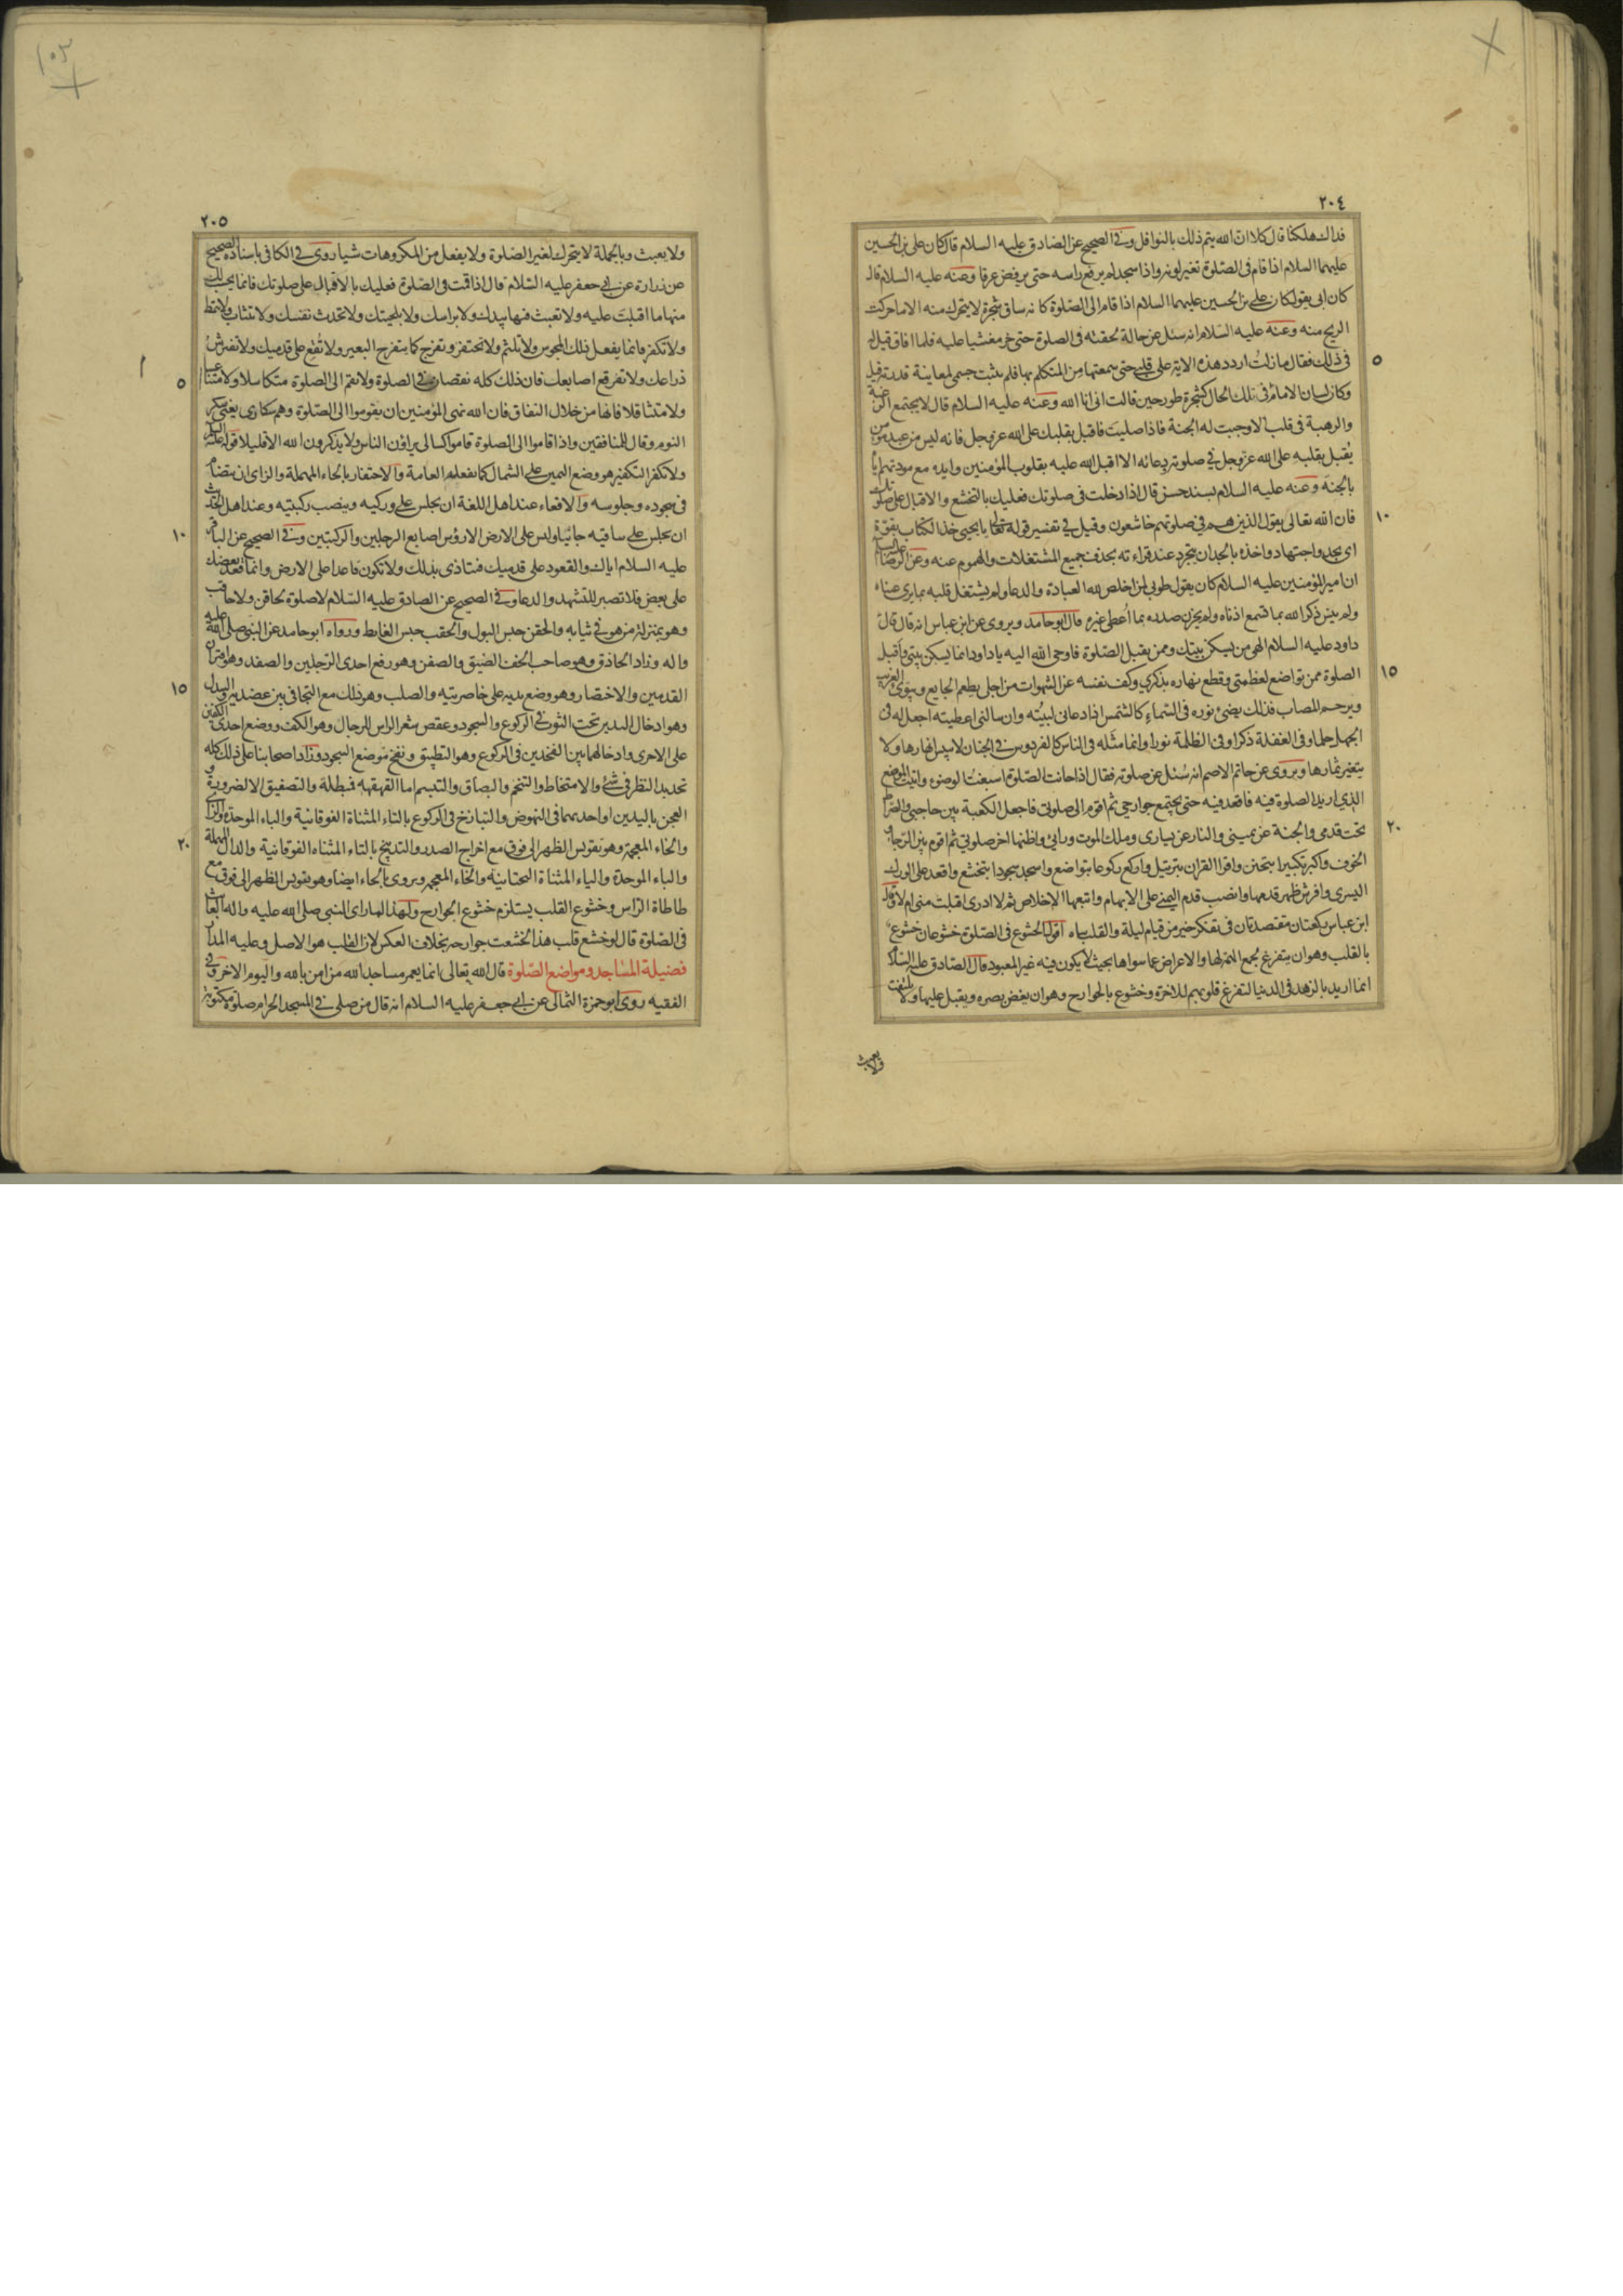 ٢٠٤
فداك هلكنا قال كلا ان الله يتم ذلك بالنوافل وفي الصحيح عن الصادق عليه السلام قال كان علي بن الحسين
عليهما السلام اذا قام في الصلوة تغير لونه واذا سجد لم يرفع راسه حتى يرفض عرقا وعنه عليه السلام قال
كان ابي يقول كان علي بن الحسين عليهما السلام اذا قام الى الصلوة كانه ساق شجرة لا يتحرك منه الا ما حركت
الريح منه وعنه عليه السلام انه سئل عن حالة لحقته في الصلوة حتى خر مغشيا عليه فلما افاق قيل له
٥
في ذلك فقال ما زلت اردد هذه الاية على قلبي حتى سمعتها من المتكلم بها فلم يثبت جسمي لمعاينة قدرته قيل
وكان لسان الامام في تلك الحال كشجرة طور حين قالت اني انا الله وعنه عليه السلام قال لا يجتمع الرغبة
والرهبة في قلب الا وجبت له الجنة فاذا صليت فاقبل بقلبك على الله عز وجل فانه ليس من عبد مؤمن
يقبل بقلبه على الله عز وجل في صلوته ودعائه الا اقبل الله عليه بقلوب المؤمنين وايده مع مودتهم اياه
بالجنة وعنه عليه السلام بسند حسن قال اذا دخلت في صلوتك فعليك بالتخشع والاقبال على صلوتك
١٠
فان الله تعالى يقول الذين هم في صلوتهم خاشعون وقيل في تفسير قوله تعالى يا يحيى خذ الكتاب بقوة
اي بجد واجتهاد واخذه بالجد ان يتجرد عند قراءته بحذف جميع المشتغلات والهموم عنه وعن الرضا عليه السلام
ان امير المؤمنين عليه السلام كان يقول طوبى لمن اخلص لله العبادة والدعاء ولم يشتغل قلبه بما يرى عيناه
ولم ينس ذكر الله بما تسمع اذناه ولم يحزن صدره بما اعطى غيره قال ابو حامد ويروى عن ابن عباس انه قال قال
داود عليه السلام الهي من يسكن بيتك وممن يقبل الصلوة فاوحى الله اليه يا داود انما يسكن بيتي واقبل
١٥
الصلوة ممن تواضع لعظمتي وقطع نهاره بذكري وكف نفسه عن الشهوات من اجلي يطعم الجايع ويؤوي الغريب
ويرحم المصاب فذلك يضيئ نوره في السماء كالشمس اذا دعاني لبيته وان سالني اعطيته اجعل له في
الجهل حلما وفي الغفلة ذكرا وفي الظلمة نورا وانما مثله في الناس كالفردوس في الجنان لا ييبس انهارها ولا
يتغير ثمارها ويروى عن حاتم الاصم انه سئل عن صلوته فقال اذا حانت الصلوة اسبغت الوضوء واتيت الموضع
الذي اريد الصلوة فيه فاقعد فيه حتى يجتمع جوارحي ثم اقوم الى صلوتي فاجعل الكعبة بين حاجبي والصراط
٢٠
تحت قدمي والجنة عن يميني والنار عن يساري وملك الموت ورائي واظنها اخر صلوتي ثم اقوم بين الرجاء و
الخوف واكبر تكبيرا بتحنن واقرا القران بترتيل واركع ركوعا بتواضع واسجد سجودا بتخشع واقعد على الورك
اليسرى وافرش ظهر قدمها وانصب قدم اليمنى على الابهام واتبعها الاخلاص ثم لا ادري اقبلت مني ام لا وقال
ابن عباس ركعتان مقتصدتان في تفكر خير من قيام ليلة والقلب ساه اقول الخشوع في الصلوة خشوعان خشوع
بالقلب وهو ان يتفرغ بجمع الهمة لها والاعراض عما سواها بحيث لا يكون فيه غير المعبود قال الصادق عليه السلام
انما اريد بالزهد في الدنيا لتفرغ قلوبهم للاخرة وخشوع بالجوارح وهو ان يغض بصره ويقبل عليها ولا يلتفت
ولا يعبث
١٠٣
٢٠٥
ولا يعبث وبالجملة لا يتحرك لغير الصلوة ولا يفعل من المكروهات شيا روى في الكافي باسناده الصحيح
عن زرارة عن ابي جعفر عليه السلام قال اذا قمت في الصلوة فعليك بالاقبال على صلوتك فانما يحسب لك
منها ما اقبلت عليه ولا تعبث فيها بيدك ولا براسك ولا بلحيتك ولا تحدث نفسك ولا تتثاب ولا تتمط
ولا تكفر فانما يفعل ذلك المجوس ولا تلثم ولا تحتفز وتفرج كما يتفرج البعير ولا تقع على قدميك ولا تفترش
٥
ذراعك ولا تفرقع اصابعك فان ذلك كله نقصان في الصلوة ولا تقم الى الصلوة متكاسلا ولا متناعسا
ولا متثاقلا فانها من خلال النفاق فان الله نهى المؤمنين ان يقوموا الى الصلوة وهم سكارى يعني سكر
النوم وقال للمنافقين واذا قاموا الى الصلوة قاموا كسالى يراؤن الناس ولا يذكرون الله الا قليلا قوله عليه السلام
ولا تكفر التكفير هو وضع اليمين على الشمال كما يفعله العامة والاحتفاز بالحاء المهملة والزاي ان يتضام
في سجوده وجلوسه والاقعاء عند اهل اللغة ان يجلس على وركيه وينصب ركبتيه وعند اهل الحديث
١٠
ان يجلس على ساقيه جاثيا وليس على الارض الا رؤس اصابع الرجلين والركبتين وفي الصحيح عن الباقر
عليه السلام اياك والقعود على قدميك فتتاذى بذلك ولا تكون قاعدا على الارض وانما قعد بعضك
على بعض فلا تصبر للتشهد والدعاء وفي الصحيح عن الصادق عليه السلام لا صلوة لحاقن ولا حاقب
وهو بمنزلة من هو في ثيابه والحقن حبس البول والحقب حبس الغايط ورواه ابو حامد عن النبي صلى الله عليه
واله وزاد الحاذق وهو صاحب الخف الضيق والصفن وهو رفع احدى الرجلين والصفد وهو اقتران
١٥
القدمين والاختصار وهو وضع يديه على خاصرتيه والصلب وهو ذلك مع التجافي بين عضديه والسدل
وهو ادخال اليدين تحت الثوب في الركوع والسجود وعقص شعر الراس للرجال وهو الكف ووضع احدى الكفين
على الاخرى وادخالهما بين الفخذين في الركوع وهو التطبيق ونفخ موضع السجود وزاد اصحابنا على ذلك كله
تحديد النظر في شئ والامتخاط والتنخم والبصاق والتبسم اما القهقهه فمبطلة والتصفيق الا لضرورة و
العجن باليدين او احديهما في النهوض والتبازخ في الركوع بالتاء المثناة الفوقانية والباء الموحدة والزاي
٢٠
والخاء المعجمة وهو تقويس الظهر الى فوق مع اخراج الصدر والتدبيخ بالتاء المثناه الفوقانية والدال المهملة
والباء الموحدة والياء المثناة التحتانية والخاء المعجمة ويروى بالحاء ايضا وهو تقويس الظهر الى فوق مع
طاطاة الراس وخشوع القلب يستلزم خشوع الجوارح ولهذا لما راى النبي صلى الله عليه واله العابث
في الصلوة قال لو خشع قلب هذا لخشعت جوارحه بخلاف العكس لان القلب هو الاصل وعليه المدار
فضيلة المساجد ومواضع الصلوة قال الله تعالى انما يعمر مساجد الله من امن بالله واليوم الاخر وفي
الفقيه روى ابو حمزة الثمالي عن ابي جعفر عليه السلام انه قال من صلى في المسجد الحرام صلوة مكتوبة